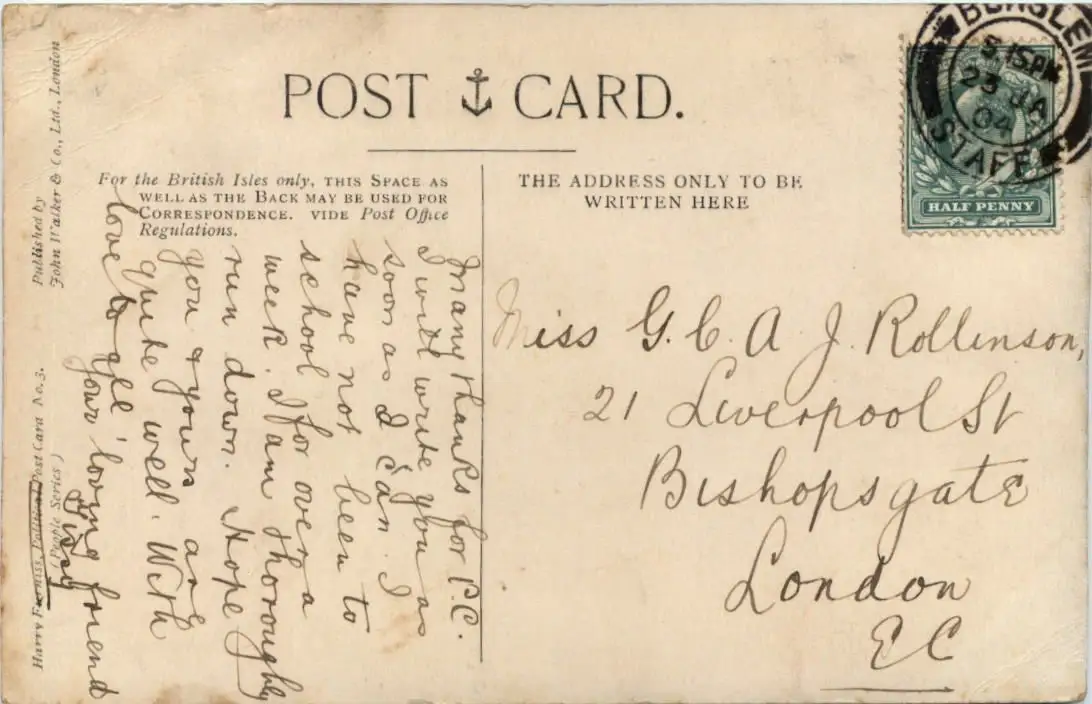 POST CARD.
For the British Isles only, THIS SPACE AS
WELL AS THE BACK MAY BE USED FOR
CORRESPONDENCE. VIDE Post Office
Regulations.
THE ADDRESS ONLY TO BE
WRITTEN HERE
BURSLEM
5.15PM
23 JA
04
STAFF
HALF PENNY
Many thanks for P.C.
I will write you as
soon as I can. I
have not been to
school for over a
week. I am thoroughly
run down. Hope
you & yours are
quite well. With
love to all
your loving friend
Miss G. C. A J. Rollinson,
21 Liverpool St
Bishopsgate
London
EC
Published by
John Walker & Co., Ltd., London
Harry Furniss, Political Post Card No. 3.
(People Series)